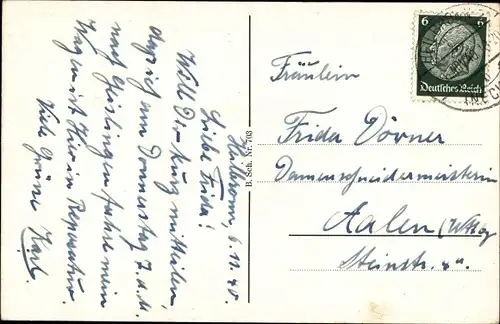 Heilbronn, 6.11.40.
Liebe Frida!
Will Dir kurz mitteilen,
daß ich am Donnerstag 7. d. M.
nach Geislingen fahre mein
Wagen ist hier in Reparatur.
Viele Grüsse Karl.
B. Sch. Nr. 703
6 6
Deutsches Reich
Fräulein
Frida Dörner
Damenschneidermeisterin
Aalen (Wttbg
Steinstr.